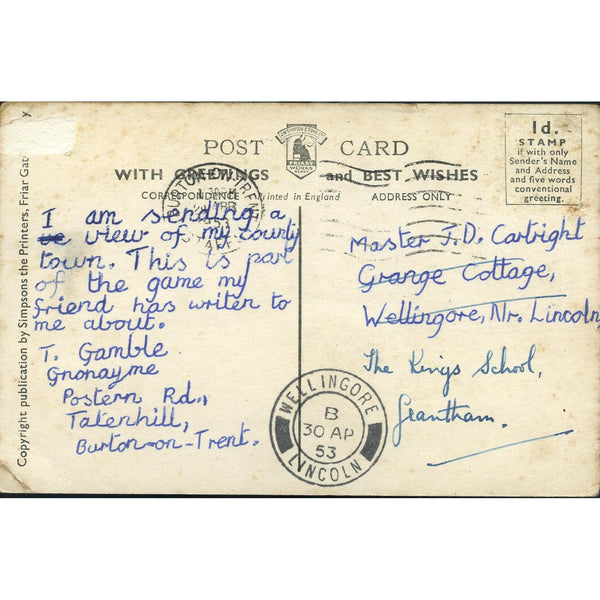 POST CARD
WITH GREETINGS and BEST WISHES
CORRESPONDENCE Printed in England ADDRESS ONLY
1d.
STAMP
if with only
Sender's Name
and Address
and five words
conventional
greeting.
FRIARY
WORKS
BURTON-ON-TRENT
1953
I am sending a
view of my county
town. This is part
of the game my
friend has writen to
me about.
T. Gamble
Gnonayme
Postern Rd.,
Tatenhill,
Burton-on-Trent.
Master J.D. Cartright
Grange Cottage,
Wellingore, Nr. Lincoln
The Kings School,
Grantham.
WELLINGORE
B
30 AP
53
LINCOLN
Copyright publication by Simpsons the Printers, Friar Gate